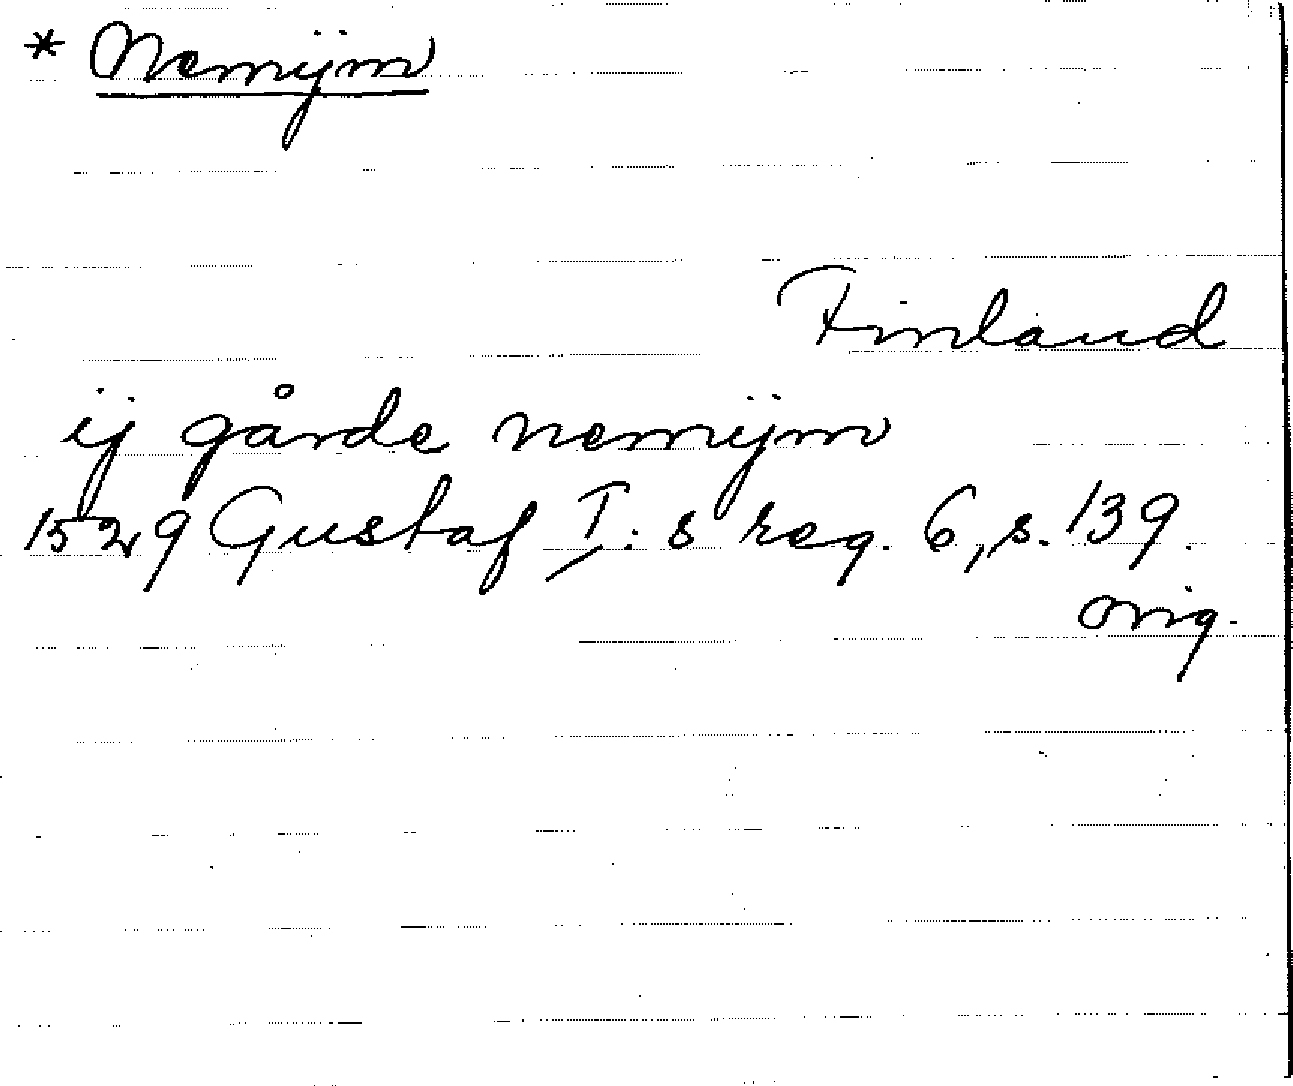 * Nemÿm
Finland
ij gårde nemÿm
1529 Gustaf I:s reg. 6, s. 139.
orig.